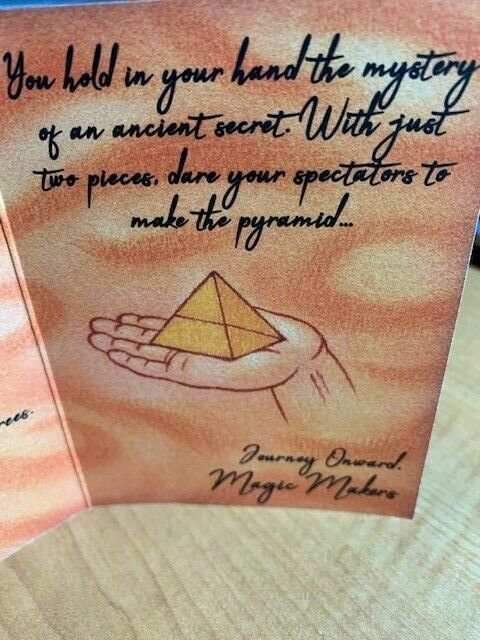 You hold in your hand the mystery
of an ancient secret. With just
two pieces, dare your spectators to
make the pyramid...
rees.
Journey Onward,
Magic Makers